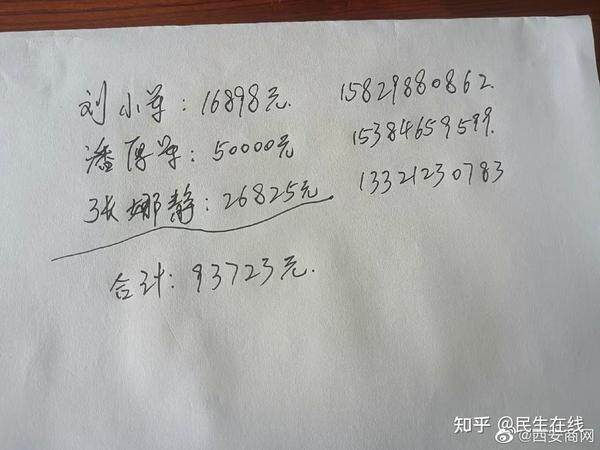 刘小军：16898元. 15829880862.
潘厚军：50000元 15384659599.
张娜静：26825元 13321230783
合计：93723元.
知乎 @民生在线
@西安商网